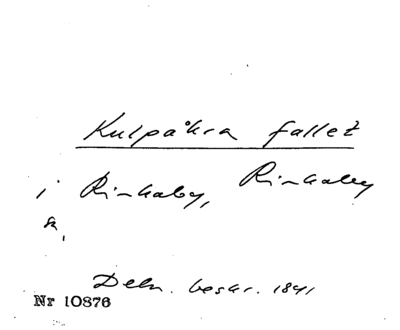 Kulpåkra fallet
i Rinkaby, Rinkaby
s.
Deln. beskr. 1841
Nr 10876